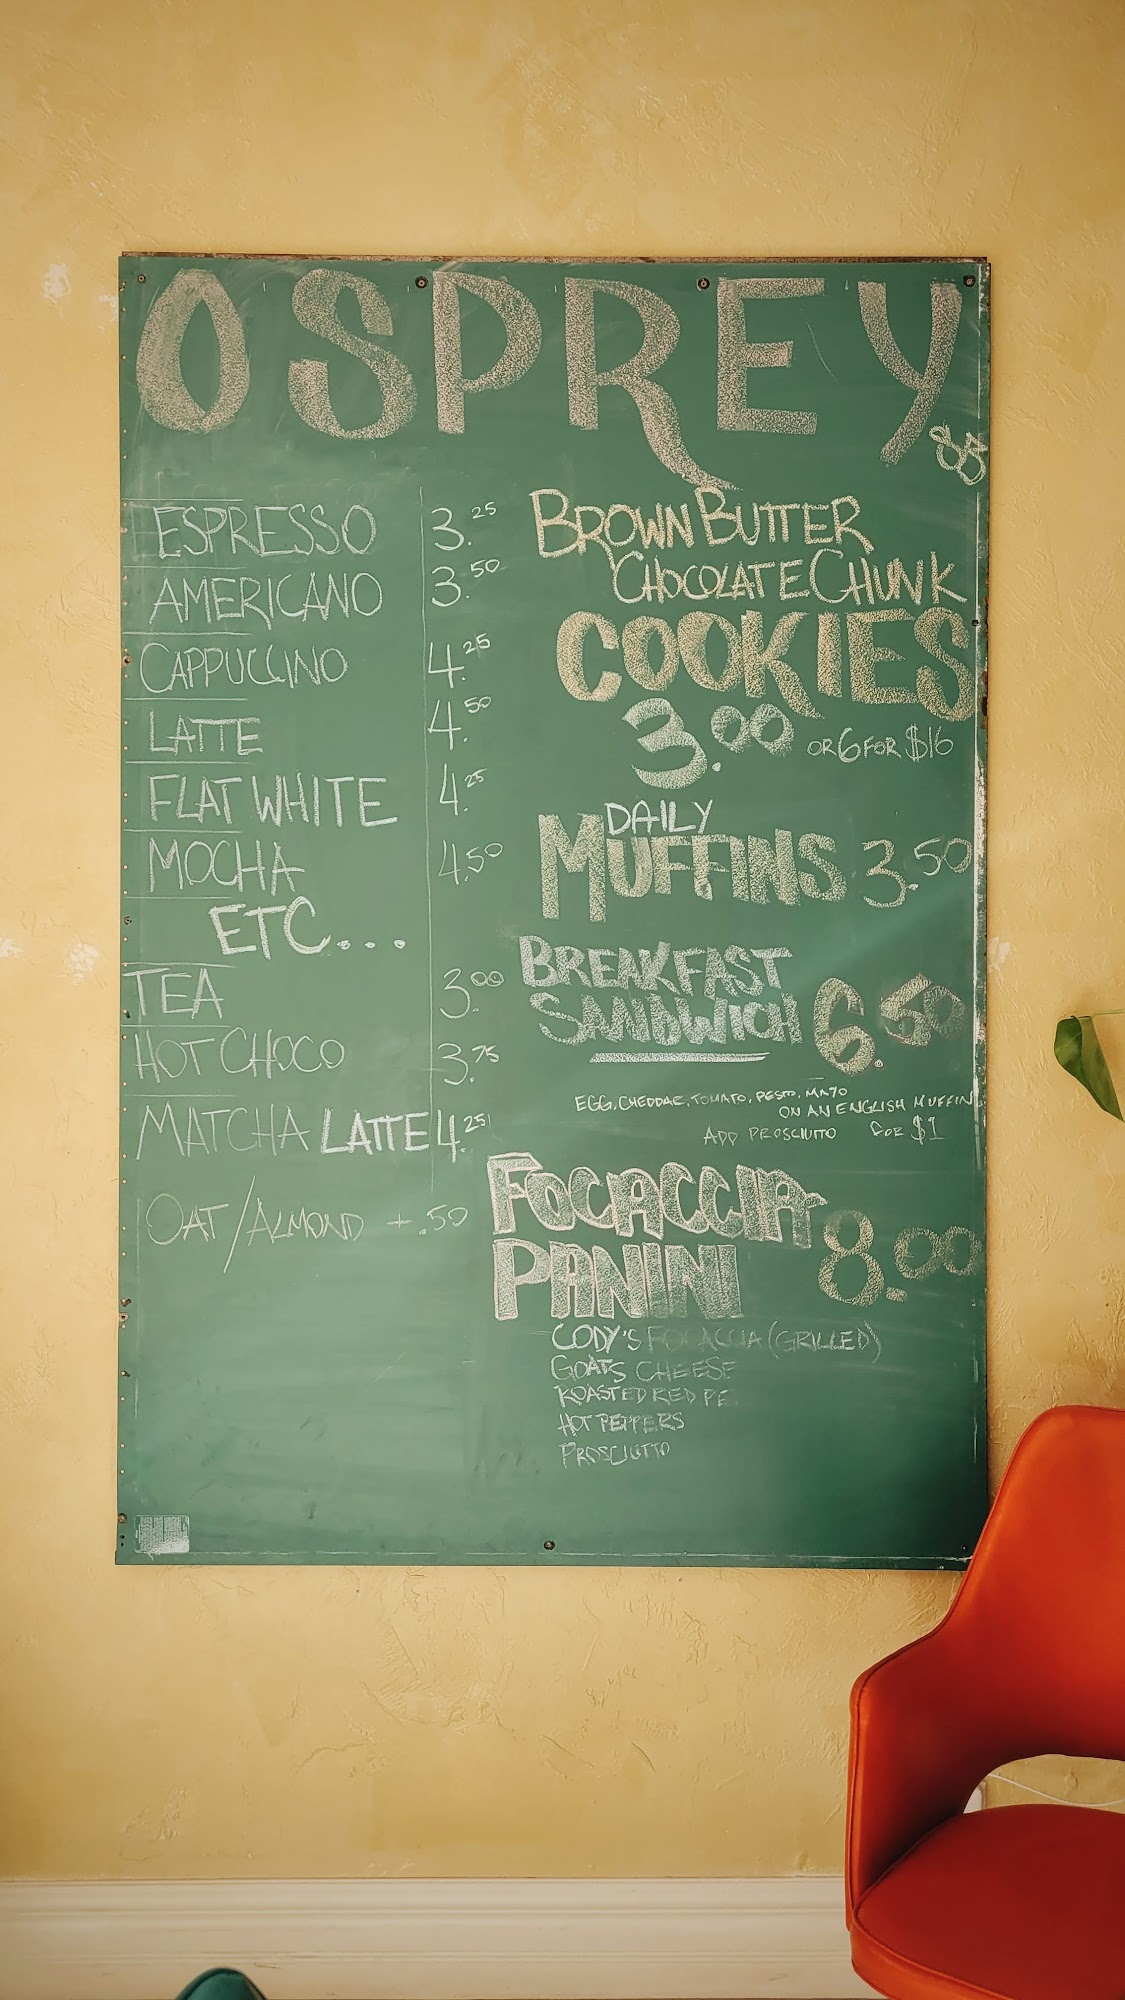 OSPREY
ESPRESSO 3.25
AMERICANO 3.50
CAPPUCCINO 4.25
LATTE 4.50
FLAT WHITE 4.25
MOCHA 4.50
ETC....
TEA 3.00
HOT CHOCO 3.75
MATCHA LATTE 4.25
OAT/ALMOND +.50
BROWN BUTTER
CHOCOLATE CHUNK
COOKIES
3.00 OR 6 FOR $16
DAILY
MUFFINS 3.50
BREAKFAST
SANDWICH 6.50
EGG, CHEDDAR, TOMATO, PESTO, MAYO
ON AN ENGLISH MUFFIN
ADD PROSCIUTTO FOR $1
FOCACCIA
PANINI 8.00
CODY'S FOCACCIA (GRILLED)
GOATS CHEESE
ROASTED RED PE
HOT PEPPERS
PROSCIUTTO